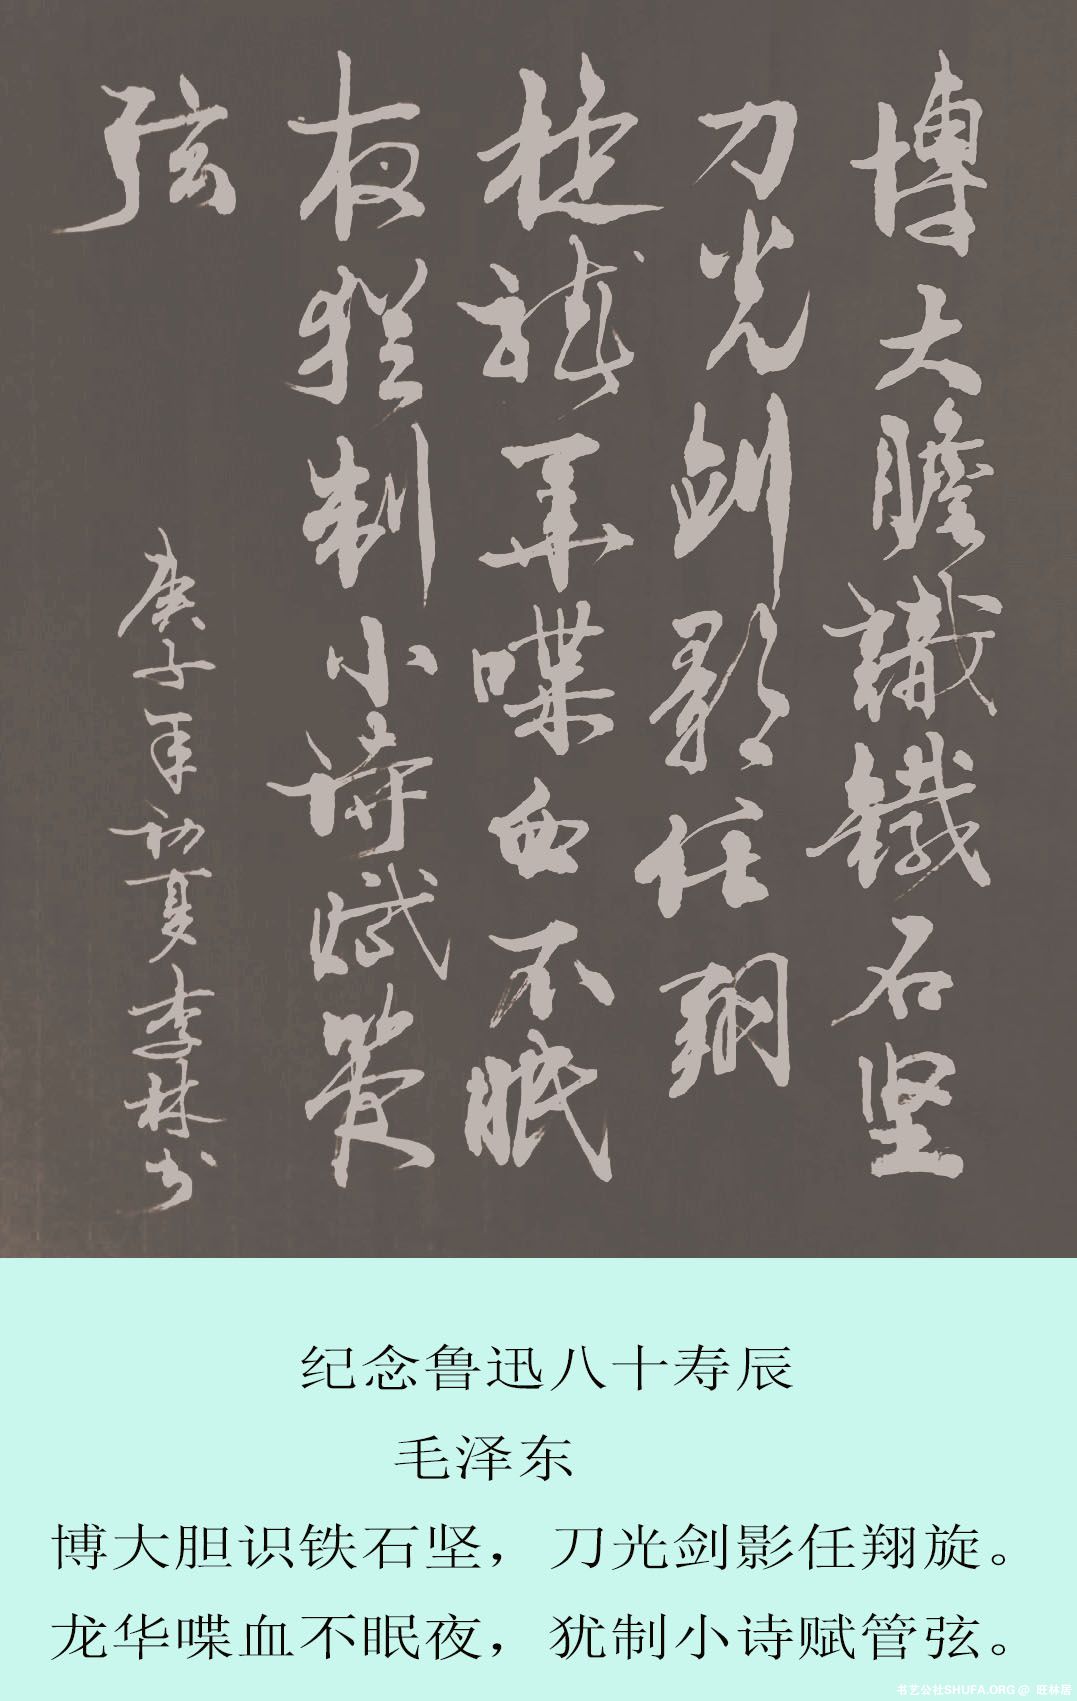 博大膽識鐵石坚
刀光劍影任翔
旋龙华喋血不眠
夜猶制小詩赋管
弦
庚子年初夏李林书
纪念鲁迅八十寿辰
毛泽东
博大胆识铁石坚，刀光剑影任翔旋。
龙华喋血不眠夜，犹制小诗赋管弦。
书艺公社SHUFA.ORG @ 旺林居